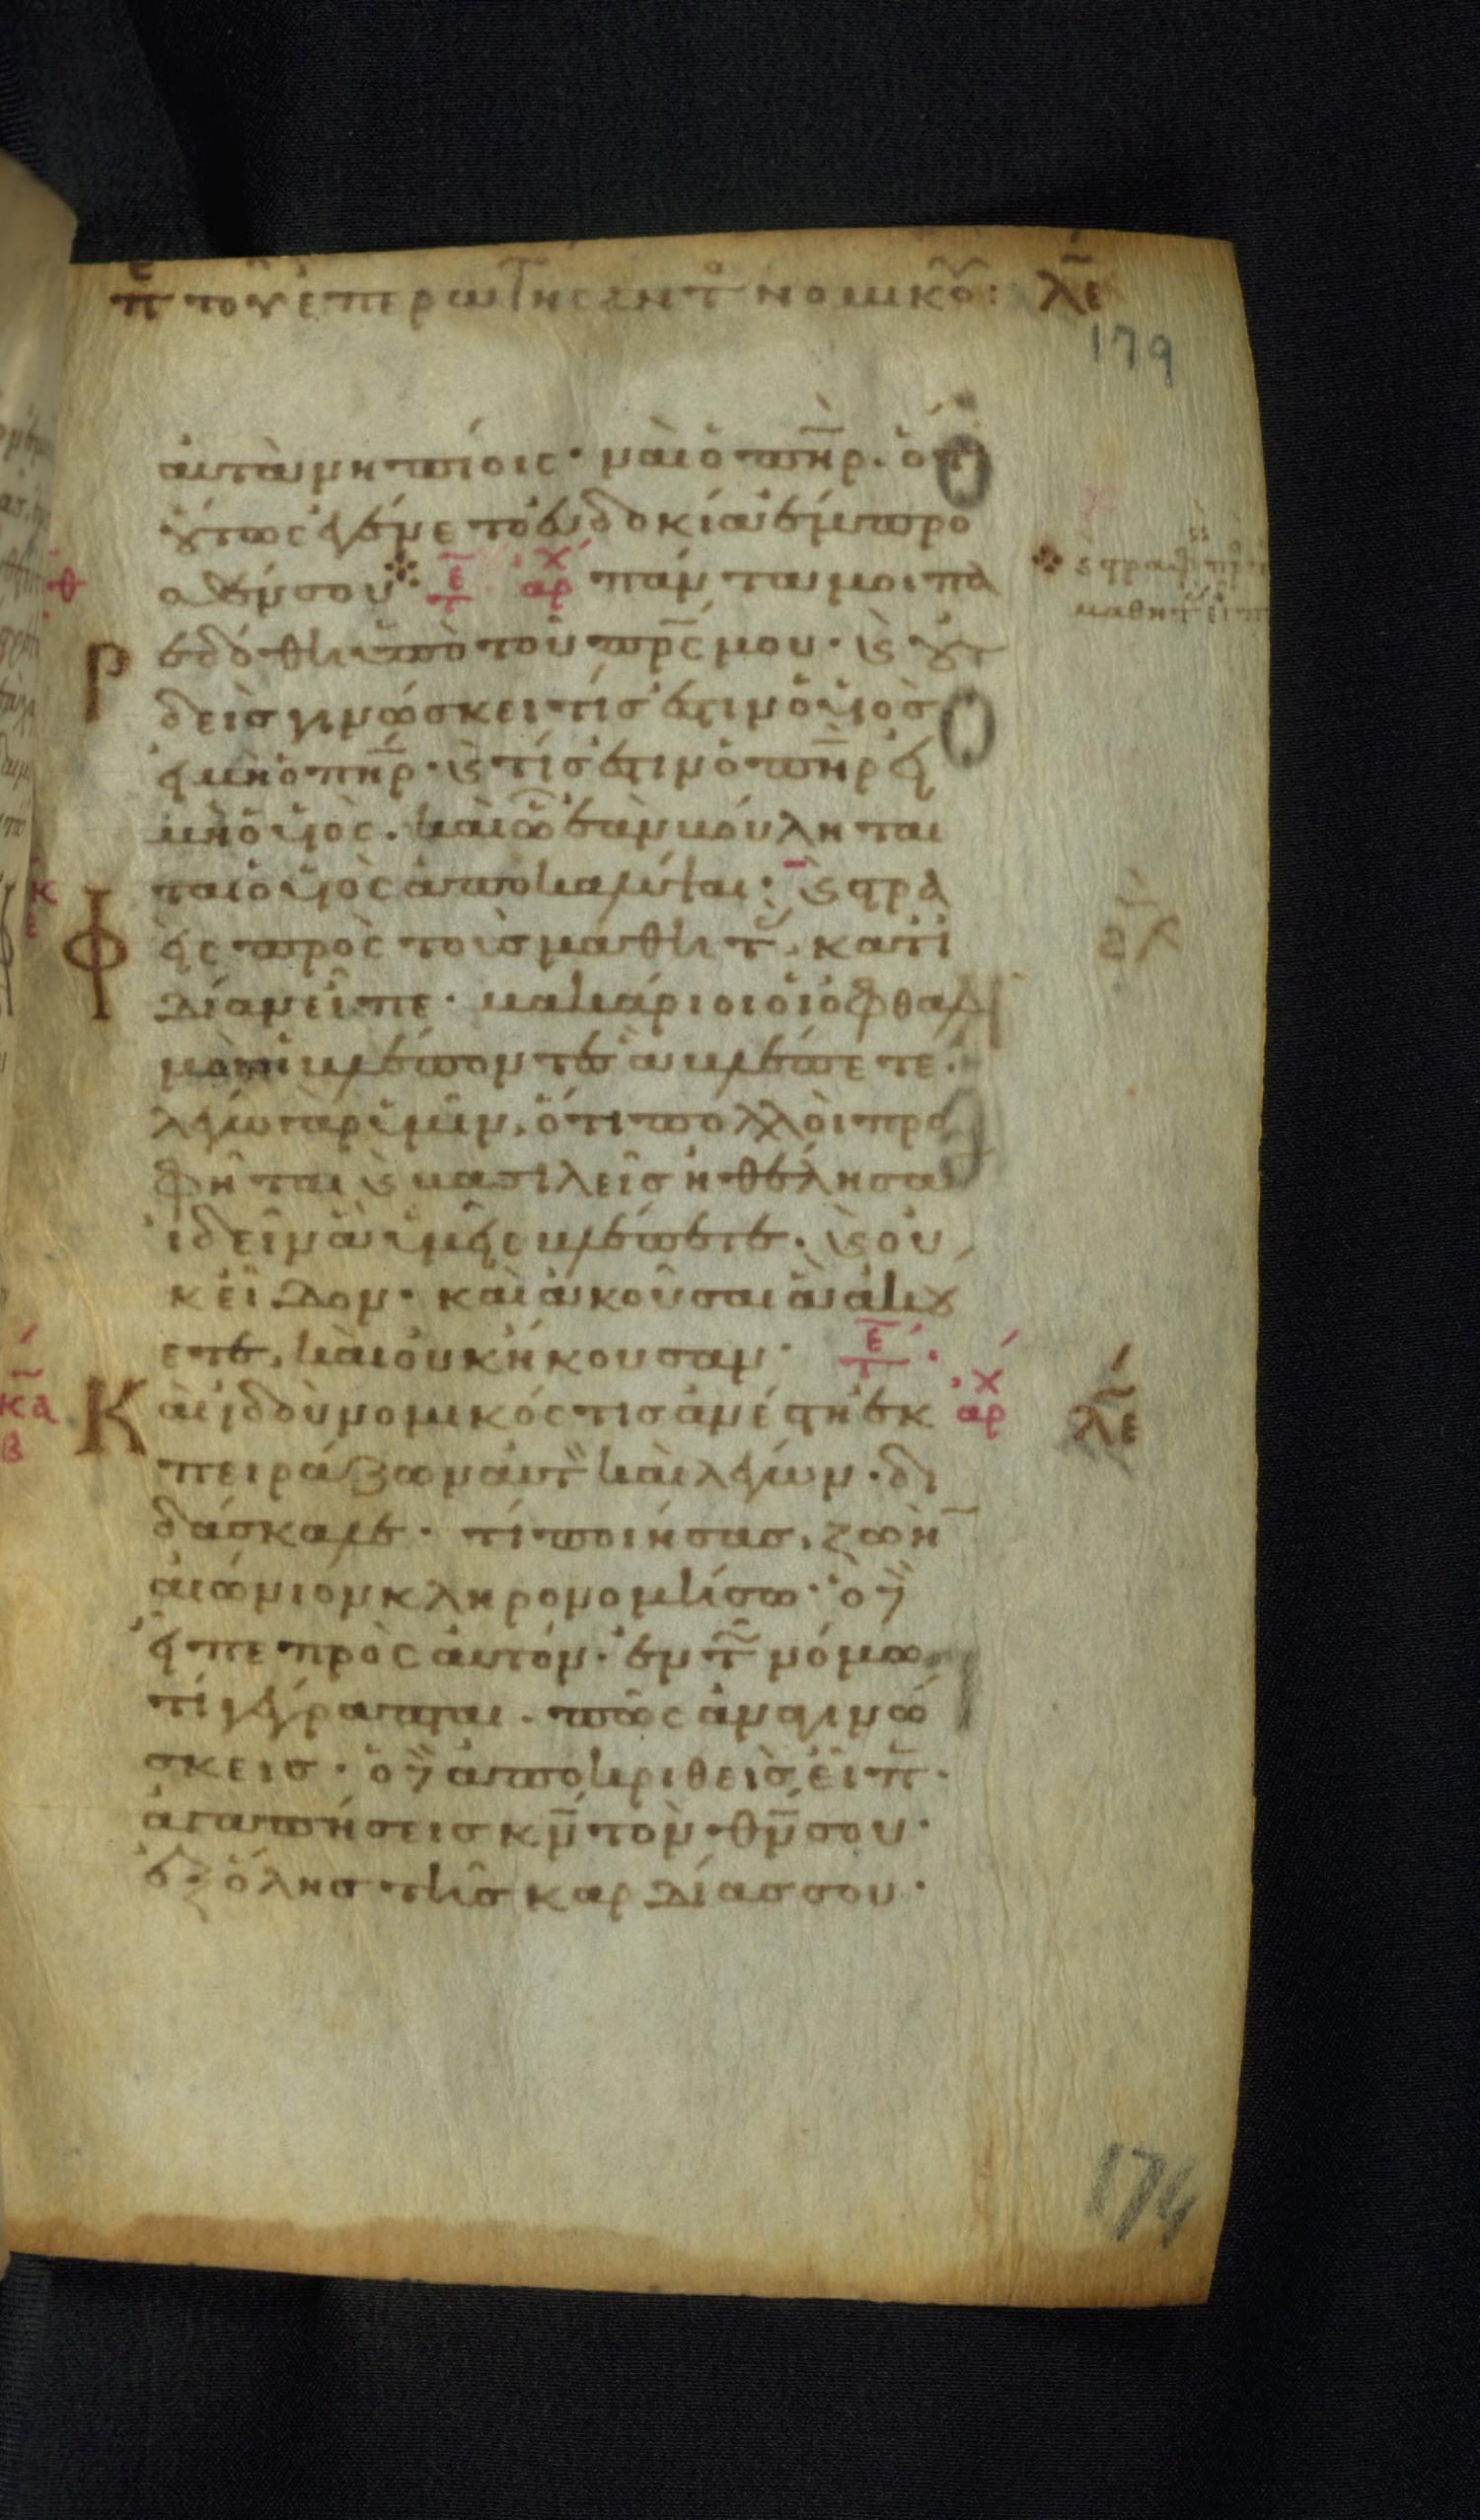 πε του επερωτησαντ νομικου: λε
179
αυτα νηπίοις· ναι ὁ πηρ. ὅτι
οὕτως ἐγένετο εὐδοκία ἔμπρο
σθέν σου· τε αρχ πάντα μοι πα
εδόθη ὑπὸ τοῦ πρς μου· καὶ οὐ
δεὶς γινώσκει τίς ἐστιν ὁ υἱὸς
εἰ μὴ ὁ πηρ· καὶ τίς ἐστιν ὁ πηρ εἰ
μὴ ὁ υἱὸς. καὶ ὧ ἐὰν βούλη ται
ται ὁ υἱὸς ἀποκαλύψαι: καὶ στρα
φεὶς πρὸς τοὺς μαθητ. κατ ἰ
δίαν εἶπε· μακάριοι οἱ ὀφθαλ
μοὶ οἱ βλέποντες ἃ βλέπετε·
λέγω γὰρ ὑμῖν. ὅτι πολλοὶ προ
φῆται καὶ βασιλεῖς ἠθέλησαν
ἰδεῖν ἃ ὑμεῖς βλέπετε. καὶ οὐ
κ εἶδον· καὶ ἀκοῦσαι ἃ ἀκού
ετε. καὶ οὐκ ἤκουσαν· τε
Καὶ ἰδοὺ νομικός τις ἀνέστη ἐκ αρχ λε
πειράζων αὐτ καὶ λέγων· δι
δάσκαλε· τί ποιήσας, ζωὴ
αἰώνιον κληρονομήσω· ὁ δὲ
εἶπε πρὸς αὐτόν· ἐν τ νόμω
τί γέγραπται. πῶς ἀναγινώ
σκεις· ὁ δὲ ἀποκριθεὶς εἶπ·
ἀγαπήσεις κν τὸν θν σου·
ἐξ ὅλης τῆς καρδίας σου·
174